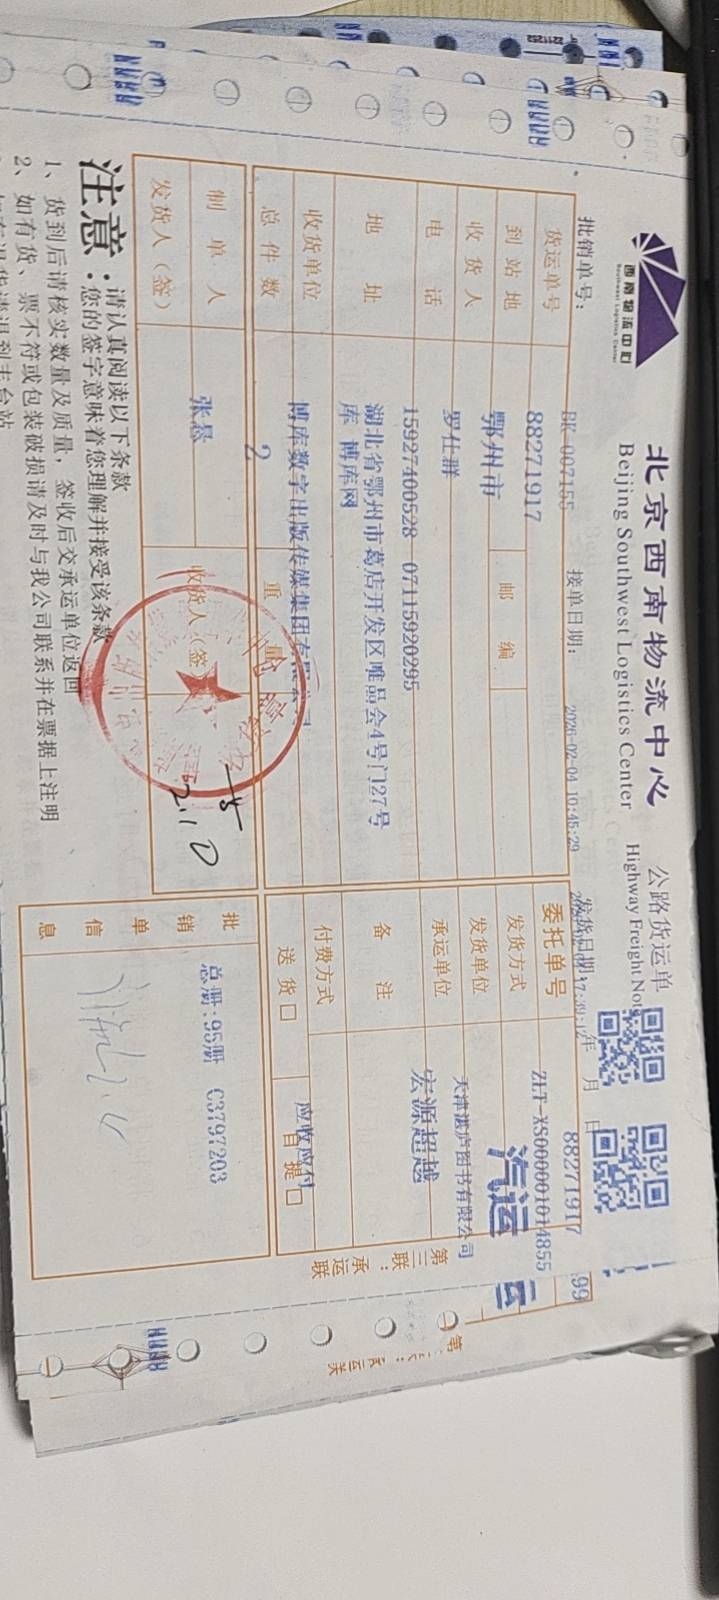 西南物流中心
Southwest Logistics Center
北京西南物流中心
Beijing Southwest Logistics Center
公路货运单
Highway Freight Note
批销单号：
BK-007155
接单日期：
2026-02-04 10:45:29
发货日期：
年 月 日
货运单号 88271917
委托单号 ZLT-XS000001014855
88271917
到站地 鄂州市 邮编
发货方式 汽运
收货人 罗仕群
发货单位 天津湛庐图书有限公司
电话 15927400528 07115920295
承运单位 宏源超越
地址 湖北省鄂州市葛店开发区唯品会4号门27号
库 博库网
备注
收货单位 博库数字出版传媒集团有限公司
付费方式 应收应付
总件数 2 重量
送货□ 自提□
制单人 张恳
收货人（签）
发货人（签）
2.10
批销单信息
总册:95册 C3797203
第三联：承运联
注意：
请认真阅读以下条款
您的签字意味着您理解并接受该条款
1、货到后请核实数量及质量，签收后交承运单位返回
2、如有货、票不符或包装破损请及时与我公司联系并在票据上注明